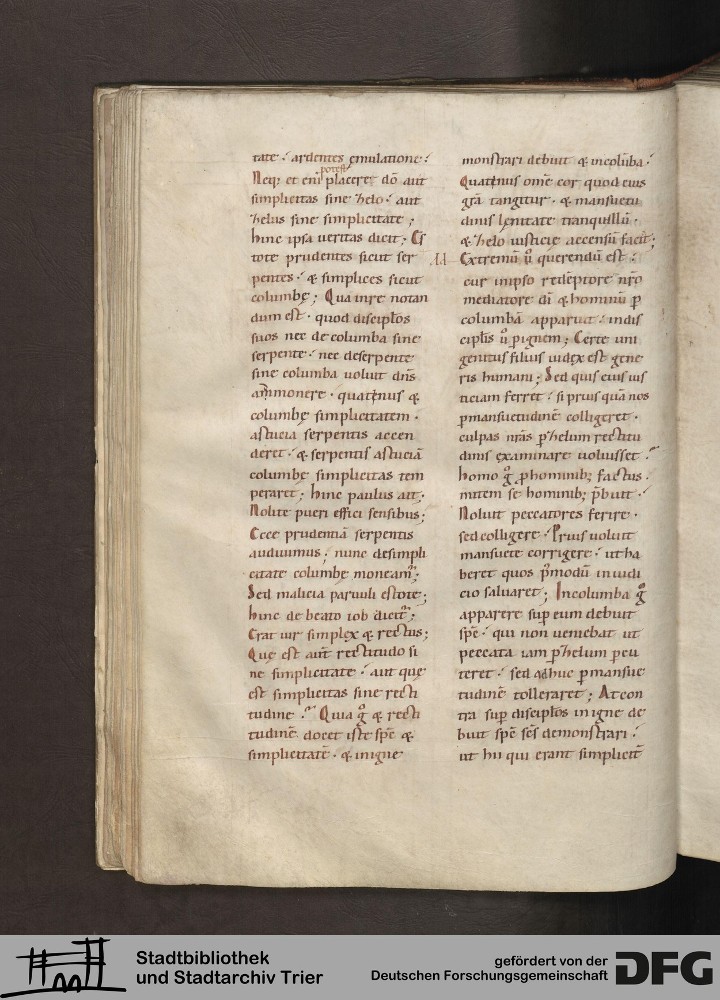 tate ⁏ ardentes emulatione ⁏
potest
Neq; et eni placere dō aut
simplicitas sine zelo ⁏ aut
zelus sine simplicitate ;
hinc ipsa ueritas dicit ; Es
tote prudentes sicut ser
pentes · & simplices sicut
columbę ; Qua inre notan
dum est · quod discipłos
suos nec de columba sine
serpente · nec deserpente
sine columba uoluit dn̄s
ammonere · quatenus &
columbę simplicitatem ·
astucia serpentis accen
deret · & serpentis astuciā
columbę simplicitas tem
peraret ; hinc paulus ait ·
Nolite pueri effici sensibus ;
Ecce prudentiā serpentis
audiuimus ; nunc desimpli
citate columbę moneam̄ ;
Sed malicia paruuli estote ;
hinc de beato iob dicit̄ ;
Erat uir simplex & rectus ;
Quę est aut̄ rectitudo si
ne simplicitate · aut quę
est simplicitas sine recti
tudine · Quia g° & recti
tudinē docet iste sp̄c &
simplicitatē · & inigne
monstrari debuit & incolūba ·
Quatenus om̄e cor quod eius
grā tangitur · & mansuetu
dinis lenitate tranquillū ·
& zelo iusticię accensū faciť ;
Extremū ū querendū est ·
cur inipso redēptore nr̄o
mediatore dī & hominū p
columbā apparuit · indis
ciplīs ū pignem ; Certe uni
genitus filius iudex est gene
ris humani ; Sed quis eius ius
ticiam ferret · si prius quā nos
pmansuetudinē colligeret ·
culpas nr̄as pzelum rectitu
dinis examinare uoluisset ·
homo g° phominib; factus ·
mitem se hominib; p̄buit ·
Noluit peccatores ferire ·
sed colligere · Prius uoluit
mansuete corrigere · ut ha
beret quos p̄modū iniudi
cio saluaret ; Incolumba g°
apparere sup eum debuit
sp̄c · qui non ueniebat ut
peccata iam pzelum pcu
teret · sed adhuc pmansue
tudinē tolleraret ; At con
tra sup discipłos inigne de
buit sp̄c sc̄s demonstrari ·
ut hii qui erant simplicit̄
Stadtbibliothek
und Stadtarchiv Trier
gefördert von der
Deutschen Forschungsgemeinschaft
DFG